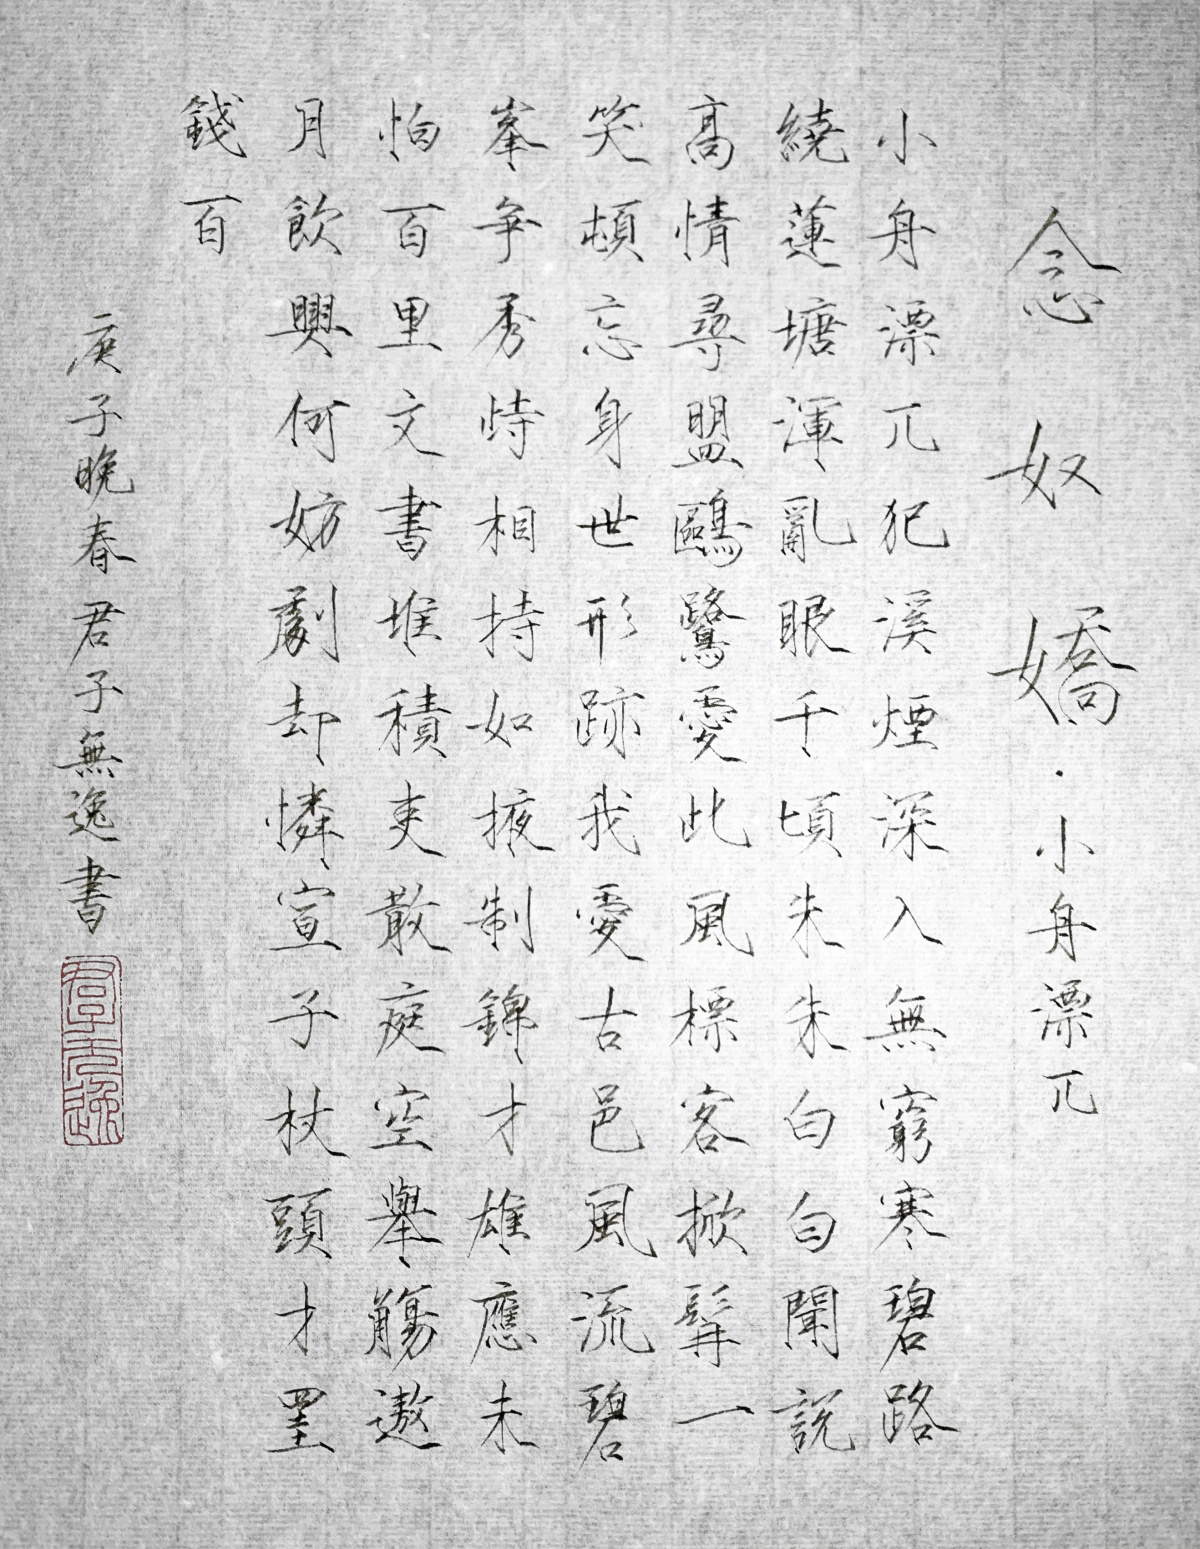 念奴嬌·小舟漂兀
小舟漂兀犯溪煙深入無窮寒碧路
繞蓮塘渾亂眼千頃朱朱白白聞說
高情尋盟鷗鷺愛此風標客掀髯一
笑頓忘身世形跡我愛古邑風流碧
峯爭秀恃相持如掖制錦才雄應未
怕百里文書堆積吏散庭空舉觴遨
月飲興何妨劇却憐宣子杖頭才罣
錢百
庚子晚春君子無逸書